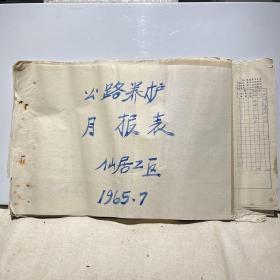 公路养护
月报表
仙居工区
1965.7